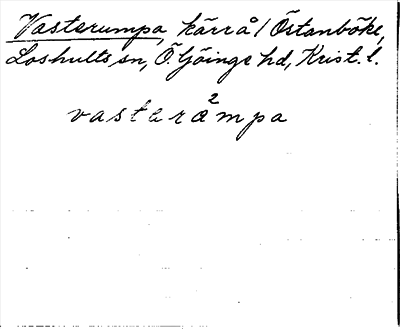 Vasterumpa, kärrå / Östanböke,
Loshults sn, Ö. Göinge hd, Krist. l.
vasterω²mpa